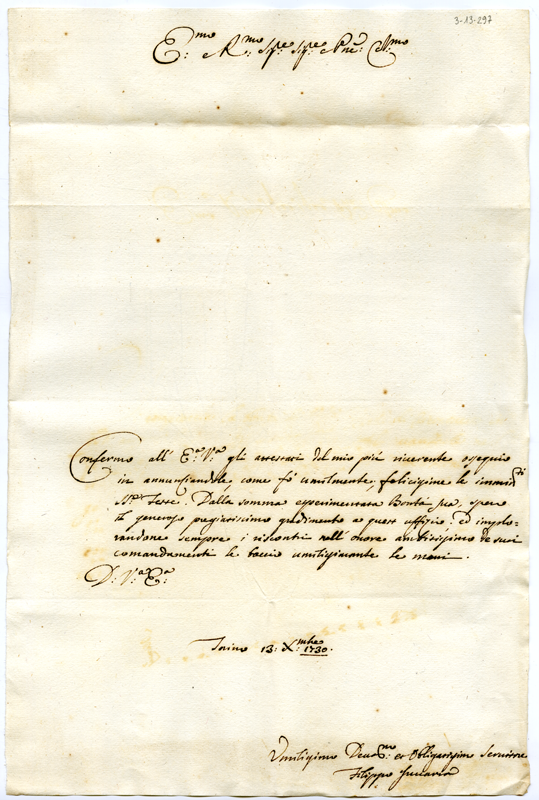 3-13-297
E:mo R:mo Sig:re Sig:re Pne: C:mo
Confermo all' E:a V:a gli attestati del mio più riverente ossequio
in annunziandole come fò umilmente, felicissime le immin:ti
S:te Feste. Dalla somma esperimentata Bontà sua, spero
il generoso pregiatissimo gradimento a quest uffizio; ed implo-
randone sempre i riscontri nell' onore ambitissimo de suoi
comandamenti le baccio umilissimamente le mani.
D: V:a E:a
Torino 13: X:mbre 1730.
Umilissimo Devot:mo et Obligatissimo Servitore
Filippo